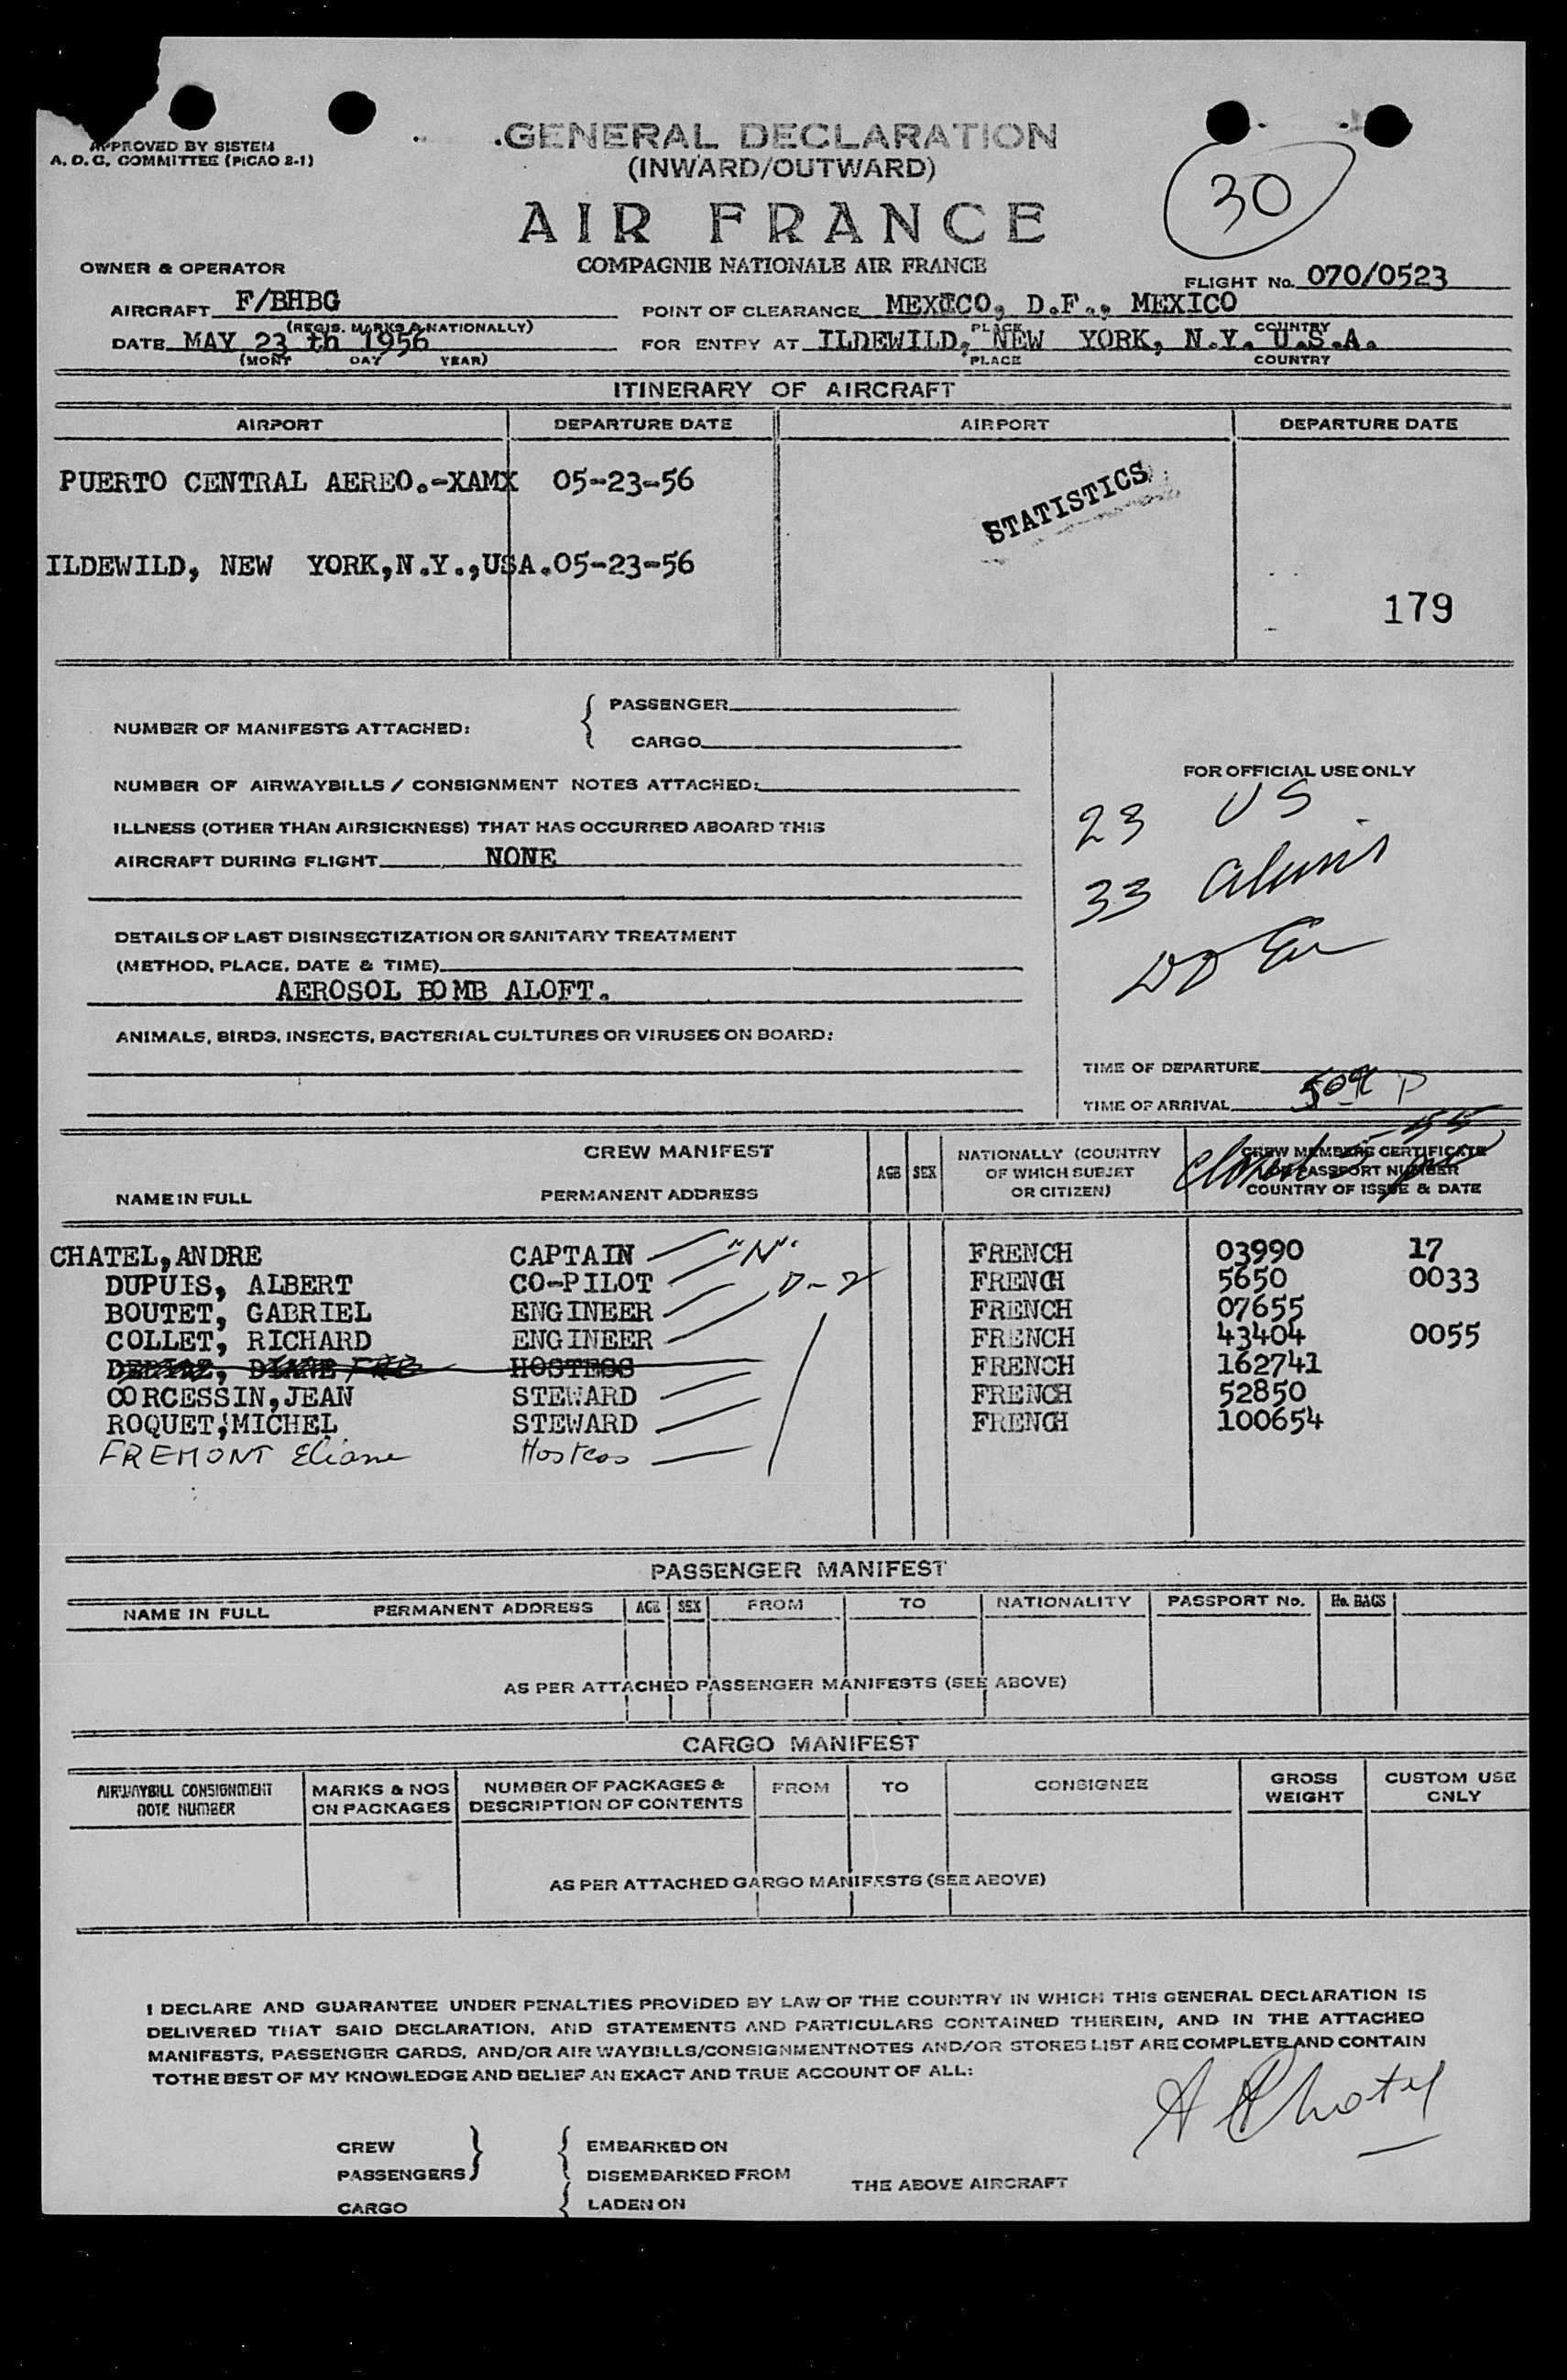 APPROVED BY SISTEM
A. D. C. COMMITTEE (PICAO 2-1)
GENERAL DECLARATION
(INWARD/OUTWARD)
30
AIR FRANCE
COMPAGNIE NATIONALE AIR FRANCE
OWNER & OPERATOR
FLIGHT No. 070/0523
AIRCRAFT F/BHBG
(REGIS. MARKS & NATIONALLY)
POINT OF CLEARANCE MEXICO, D.F., MEXICO
PLACE COUNTRY
DATE MAY 23 th 1956
(MONT DAY YEAR)
FOR ENTPY AT ILDEWILD, NEW YORK, N.Y. U.S.A.
PLACE COUNTRY
ITINERARY OF AIRCRAFT
AIRPORT DEPARTURE DATE AIRPORT DEPARTURE DATE
PUERTO CENTRAL AEREO.-XAMX 05-23-56
STATISTICS
ILDEWILD, NEW YORK,N.Y.,USA.05-23-56
179
NUMBER OF MANIFESTS ATTACHED:
PASSENGER
CARGO
NUMBER OF AIRWAYBILLS / CONSIGNMENT NOTES ATTACHED:
ILLNESS (OTHER THAN AIRSICKNESS) THAT HAS OCCURRED ABOARD THIS
AIRCRAFT DURING FLIGHT NONE
DETAILS OF LAST DISINSECTIZATION OR SANITARY TREATMENT
(METHOD, PLACE, DATE & TIME)
AEROSOL BOMB ALOFT.
ANIMALS, BIRDS, INSECTS, BACTERIAL CULTURES OR VIRUSES ON BOARD:
FOR OFFICIAL USE ONLY
23 US
33 aliens
TIME OF DEPARTURE
TIME OF ARRIVAL P
CREW MANIFEST
NAME IN FULL
PERMANENT ADDRESS
AGE SEX
NATIONALLY (COUNTRY
OF WHICH SUBJET
OR CITIZEN)
CREW MEMBERS CERTIFICATE
OR PASSPORT NUMBER
COUNTRY OF ISSUE & DATE
CHATEL,ANDRE CAPTAIN "N" FRENCH 03990 17
DUPUIS, ALBERT CO-PILOT D-2 FRENCH 5650 0033
BOUTET, GABRIEL ENGINEER FRENCH 07655
COLLET, RICHARD ENGINEER FRENCH 43404 0055
HOSTESS FRENCH 162741
CORCESSIN,JEAN STEWARD FRENCH 52850
ROQUET,MICHEL STEWARD FRENCH 100654
FREMONT Eliane Hostess
PASSENGER MANIFEST
NAME IN FULL PERMANENT ADDRESS AGE SEX FROM TO NATIONALITY PASSPORT No. No. BAGS
AS PER ATTACHED PASSENGER MANIFESTS (SEE ABOVE)
CARGO MANIFEST
AIRWAYBILL CONSIGNMENT
NOTE NUMBER
MARKS & NOS
ON PACKAGES
NUMBER OF PACKAGES &
DESCRIPTION OF CONTENTS
FROM TO CONSIGNEE
GROSS
WEIGHT
CUSTOM USE
ONLY
AS PER ATTACHED GARGO MANIFESTS (SEE ABOVE)
I DECLARE AND GUARANTEE UNDER PENALTIES PROVIDED BY LAW OF THE COUNTRY IN WHICH THIS GENERAL DECLARATION IS
DELIVERED THAT SAID DECLARATION, AND STATEMENTS AND PARTICULARS CONTAINED THEREIN, AND IN THE ATTACHED
MANIFESTS, PASSENGER CARDS, AND/OR AIR WAYBILLS/CONSIGNMENTNOTES AND/OR STORES LIST ARE COMPLETE AND CONTAIN
TOTHE BEST OF MY KNOWLEDGE AND BELIEF AN EXACT AND TRUE ACCOUNT OF ALL:
A Chatel
CREW
PASSENGERS
CARGO
EMBARKED ON
DISEMBARKED FROM
LADEN ON
THE ABOVE AIRCRAFT